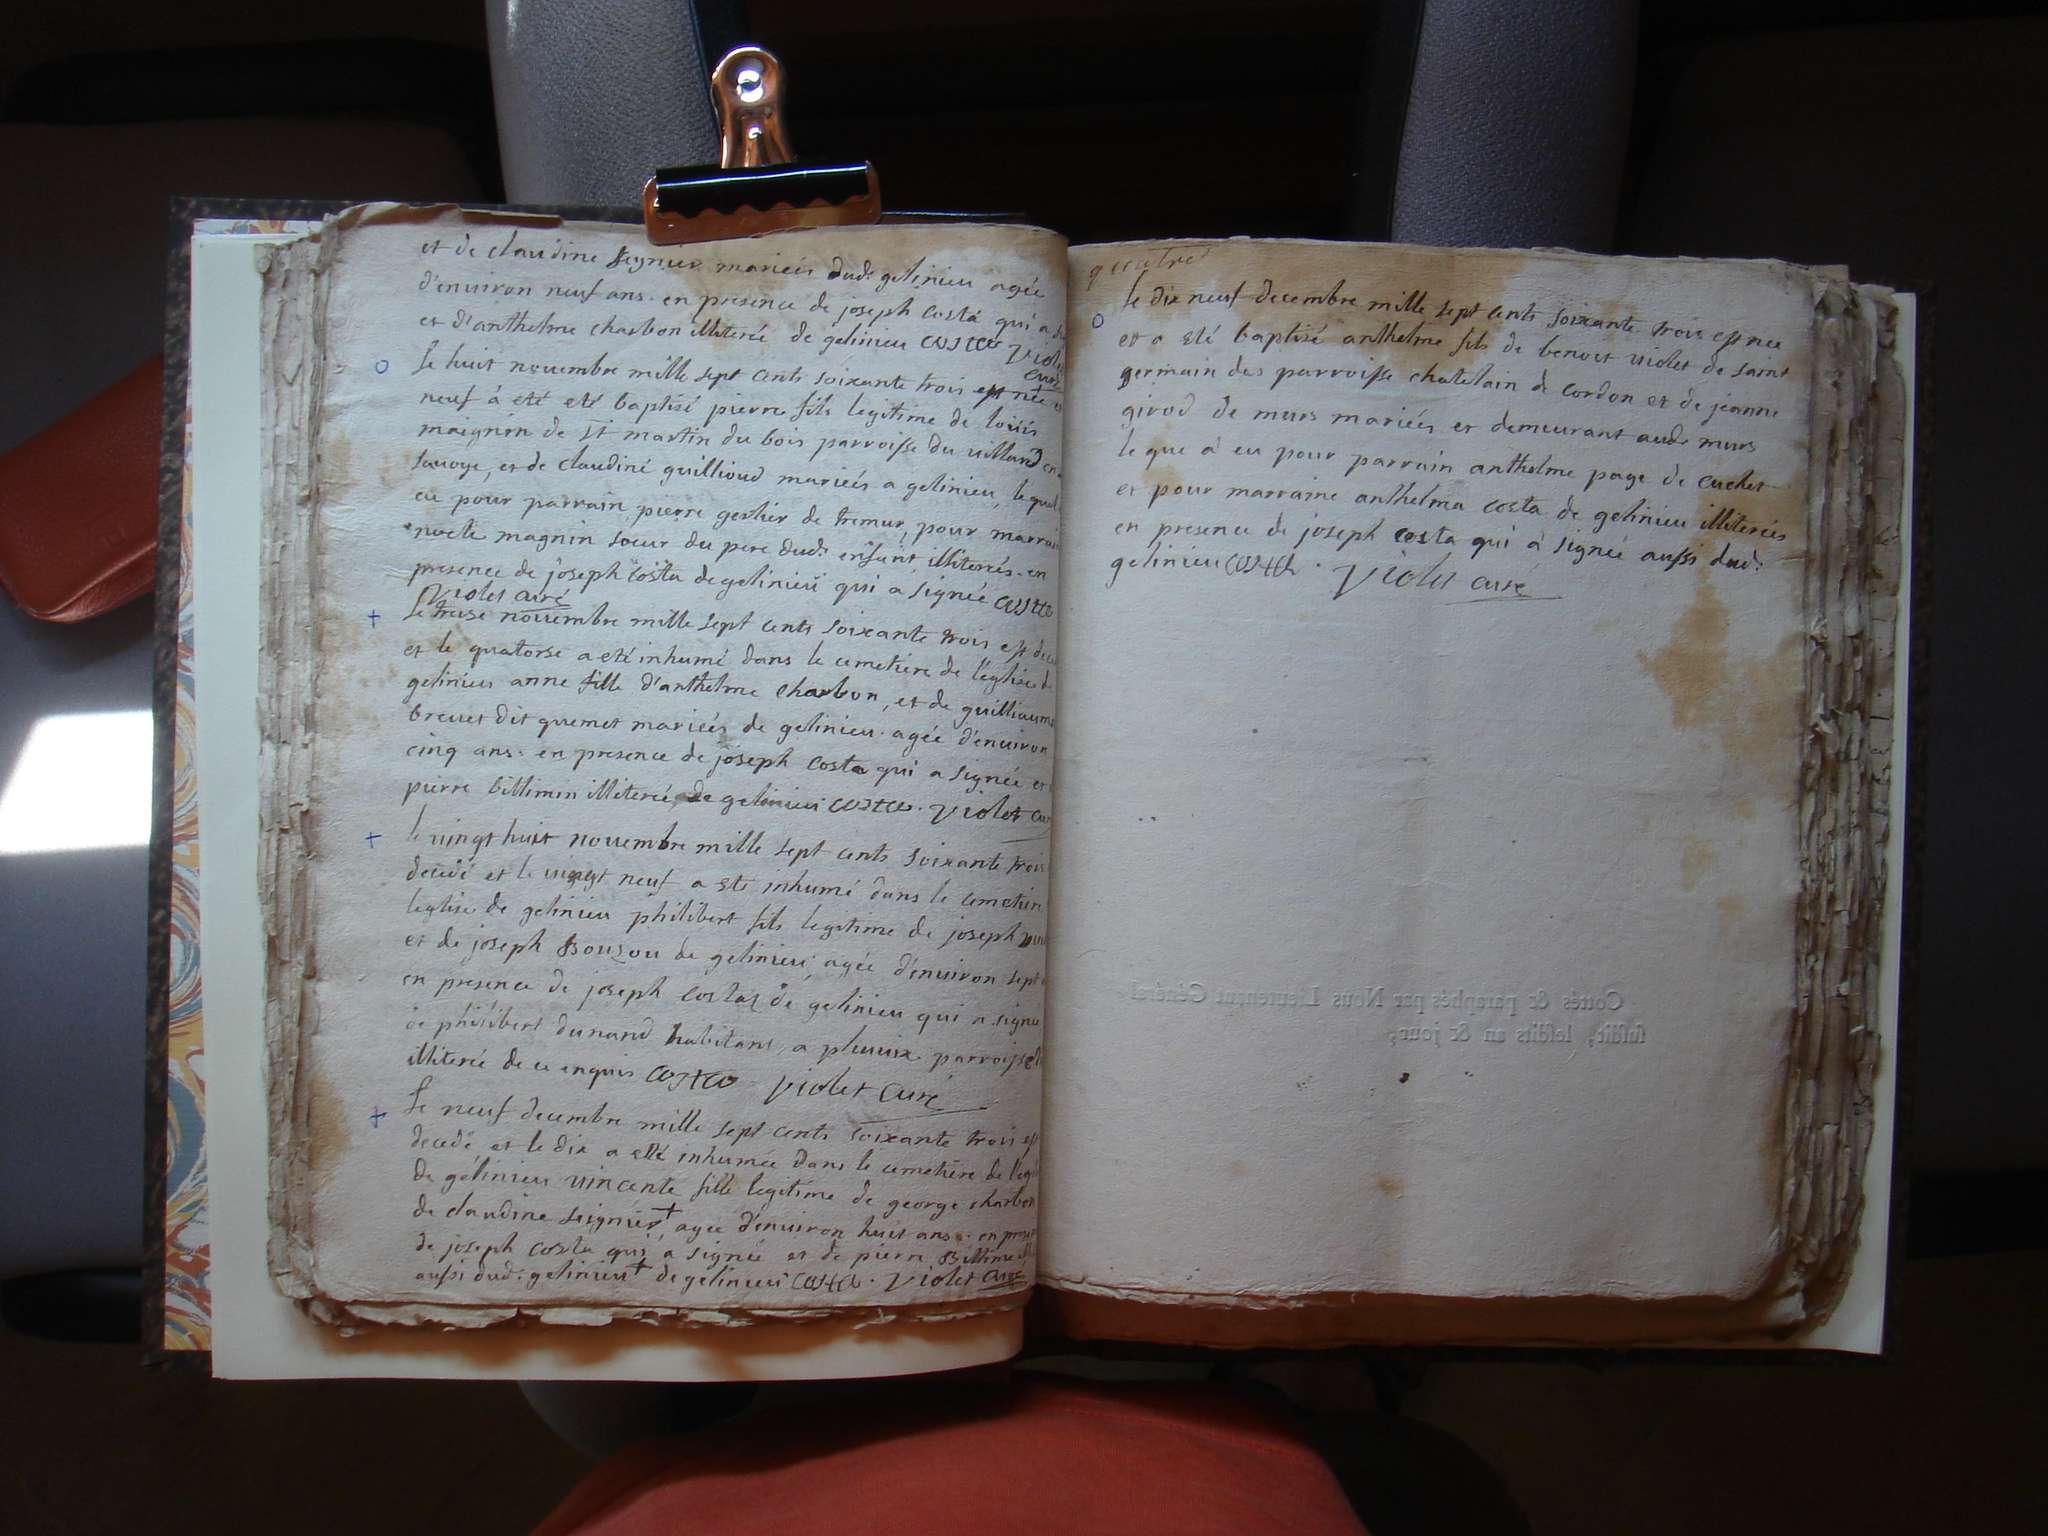 et de claudine seignier mariées dud. gelinieu agée
d'enuiron neuf ans. en presence de joseph costa qui a
et d'anthelme charbon illiterée de gelinieu costa Violet
curé
Le huit nouembre mille sept cents soixante trois est née et
neuf à eté eté baptisé pierre fils legitime de louis
maignin de st martin du bois parroisse du villard en
sauoye, et de claudine guillioud mariées a gelinieu, le quel
eu pour parrain pierre gerlier de tremur, pour marrai
magnin soeur du pere dud. enfant illiterés. en
presence de joseph costa de gelinieu qui a signée costa
Violet curé
Le treise nouembre mille sept cents soixante trois est dece
et le quatorse a eté inhumé dans le cemetiére de l'églize de
gelinieu anne fille d'anthelme charbon, et de guilliaume
breuet dit quemet mariées de gelinieu. agée d'enuiron
cinq ans. en presence de joseph costa qui a signée et
pierre billimin illiterée de gelinieu costa. Violet cur
le vingt huit nouembre mille sept cents soixante trois
decedé et le vingt neuf a eté inhumé dans le cemetier
leglise de gelinieu philibert fils legitime de joseph
et de joseph Bouzou de gelinieu agée d'enuiron sept
en presence de joseph costaz de gelinieu qui a signe
de philibert dunand habitant, a parroisse
illiterée de ce enquis costa Violet curé
Le neuf decembre mille sept cents soixante trois est
decedé et le dix a eté inhumée dans le cemetiére de l'egl
de gelinieu vincente fille legitime de george charbon
de claudine seignier + agée d'enuiron huit ans. en prese
de joseph costa qui a signée et de pierre Billime
aussi dud. gelinieu + de gelinieu costa. Violet curé
quatre
Le dix neuf decembre mille sept cents soixante trois est née
et a eté baptisé anthelme fils de benoit violet de saint
germain des parroisse chatelain de cordon et de jeanne
girod de murs mariées et demeurant aud. murs
le que à eu pour parrain anthelme page de cuchet
et pour marraine anthelma costa de gelinieu illiterées
en presence de joseph costa qui à signée aussi dud.
gelinieu costa. Violet curé
Cottés & paraphés par Nous Lieutenant Général
susdit, lesdits an & jour,